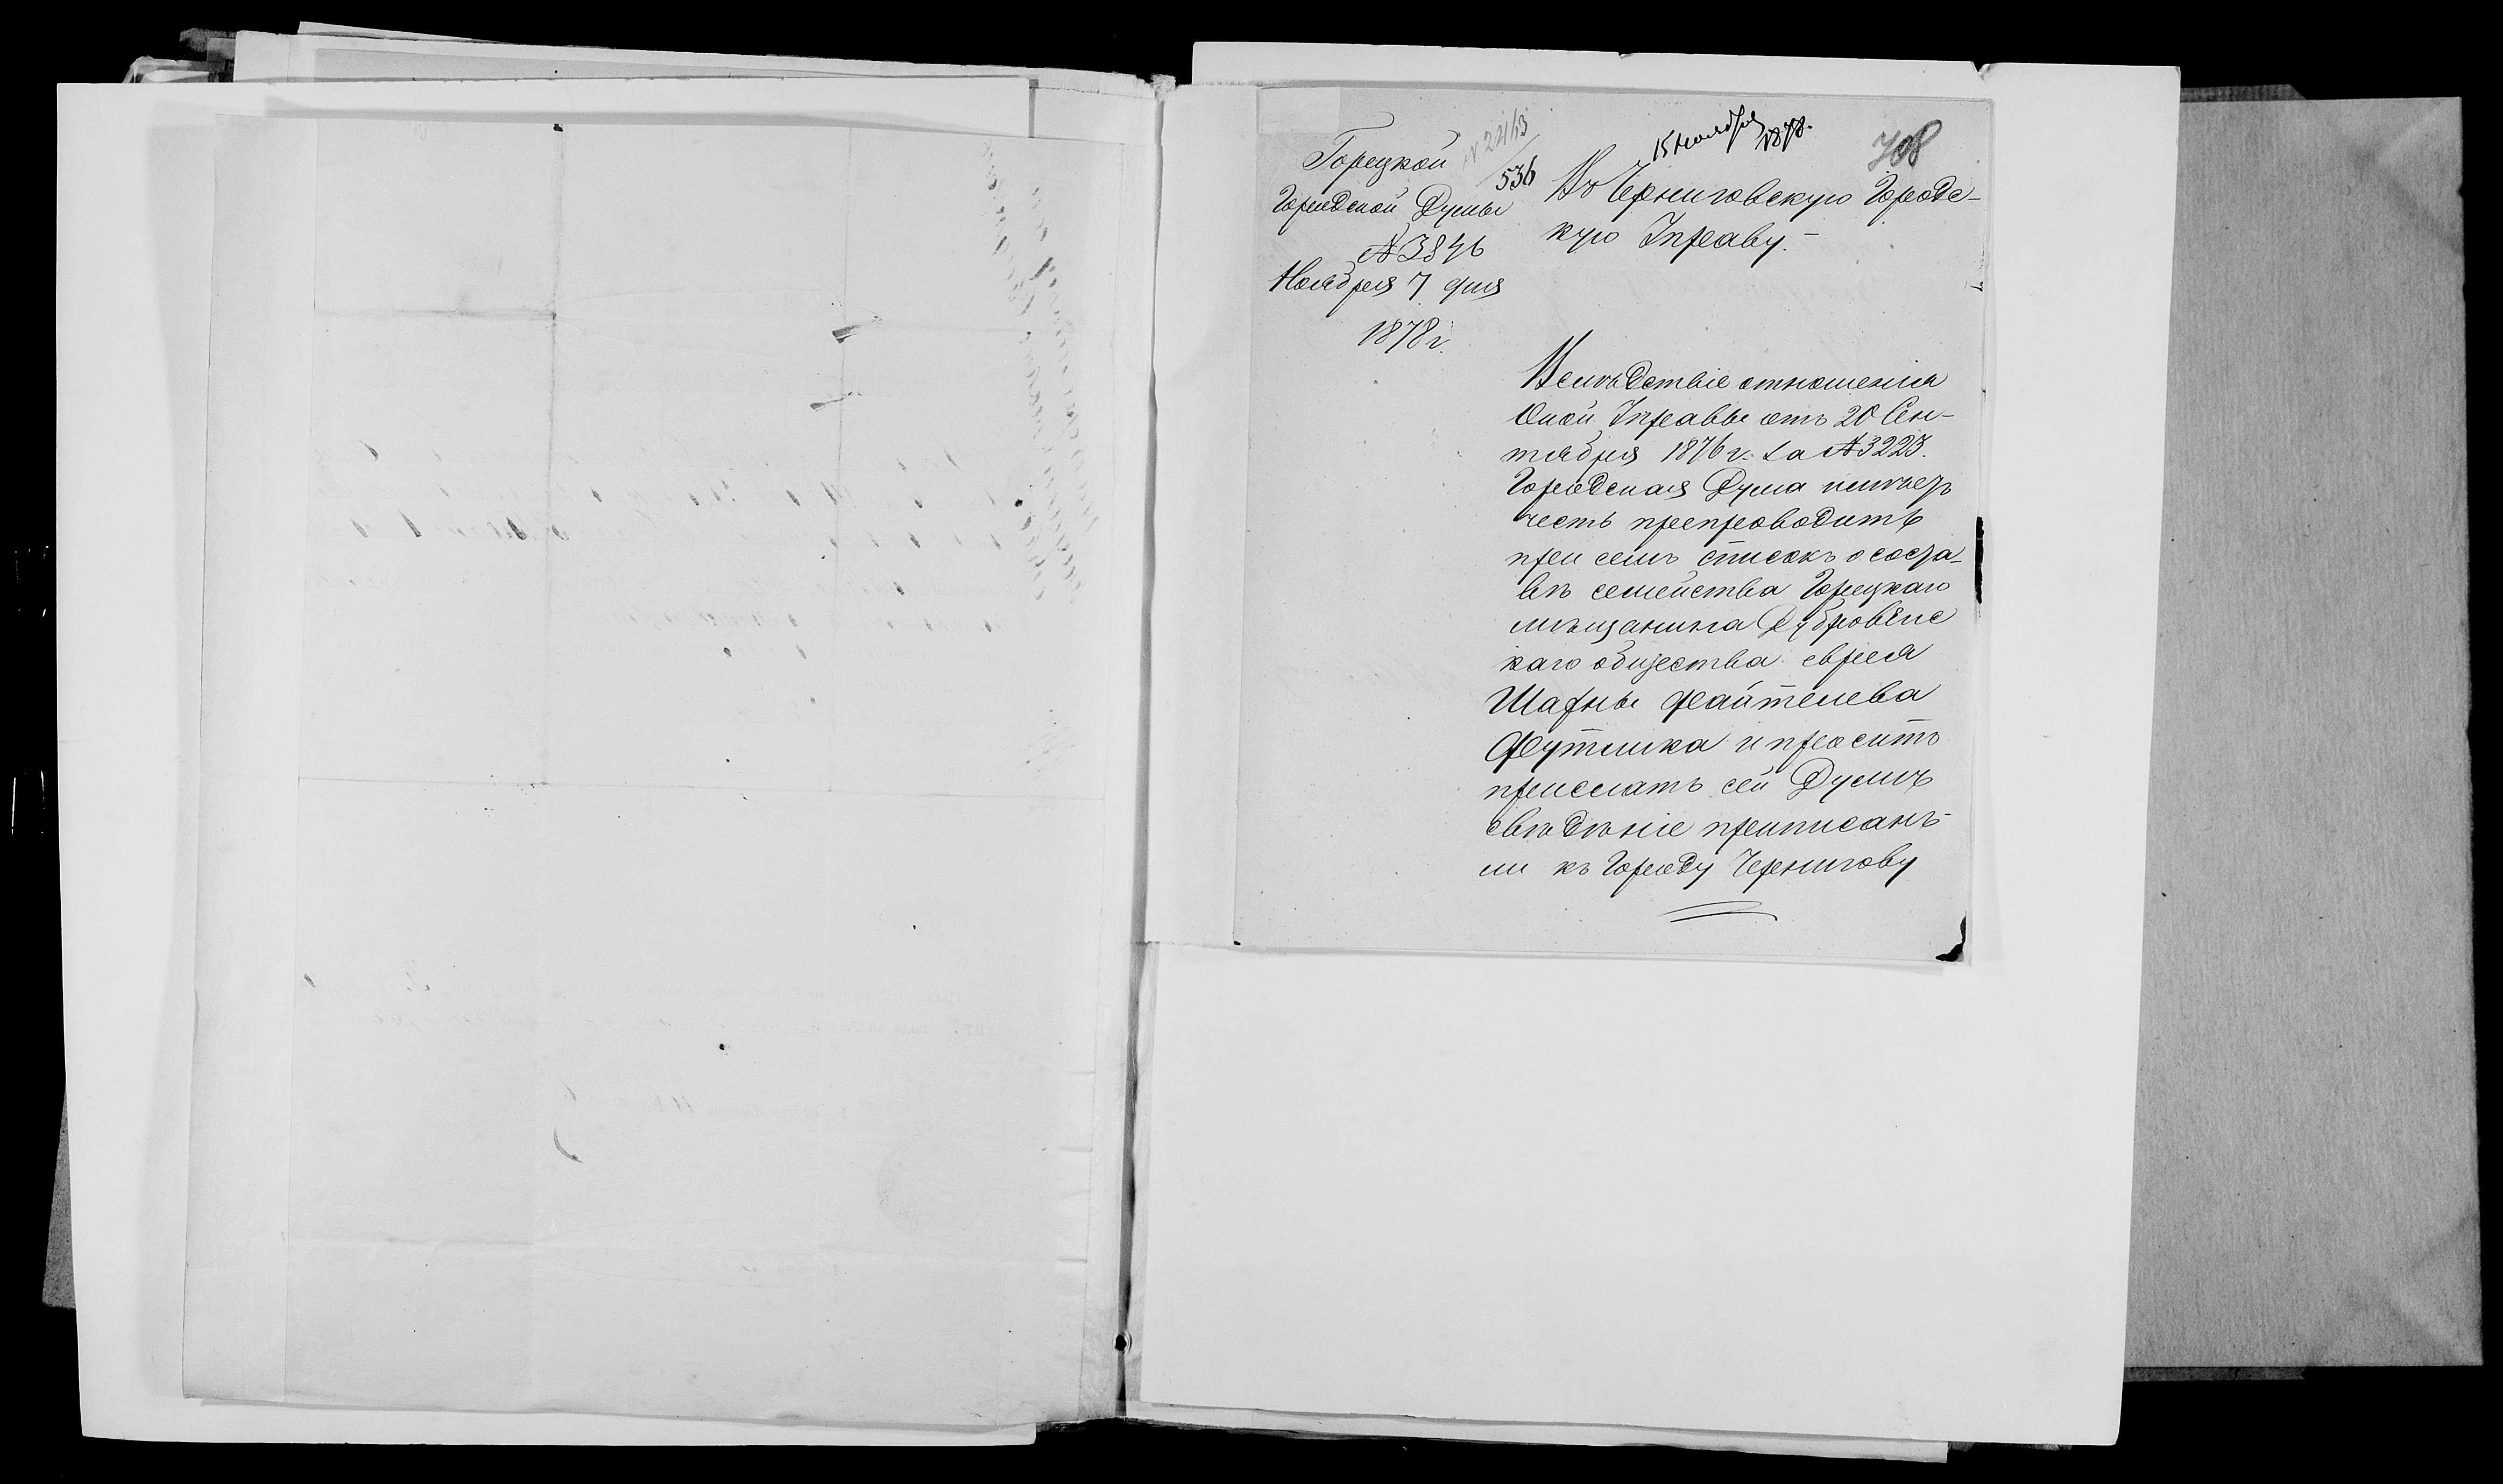 № 2463
536
15 Ноября 1878.
708
Горецкой
Городской Думы
№ 3846
Ноября 7 дня
1878 г.
Въ Черниговскую Городс-
кую Управу.
Вслѣдствіе отношенія
Оной Управы отъ 20 Сен-
тября 1876 г. за № 3223.
Городская Дума имѣетъ
честь препроводить
при семъ списокъ о соста-
вѣ семейства Горецкаго
мѣщанина Дубровенс
каго общества еврея
Шафны Файтелева
и проситъ
прислать сей Думѣ
свѣдѣніе приписанъ-
ли къ Городу Чернигову